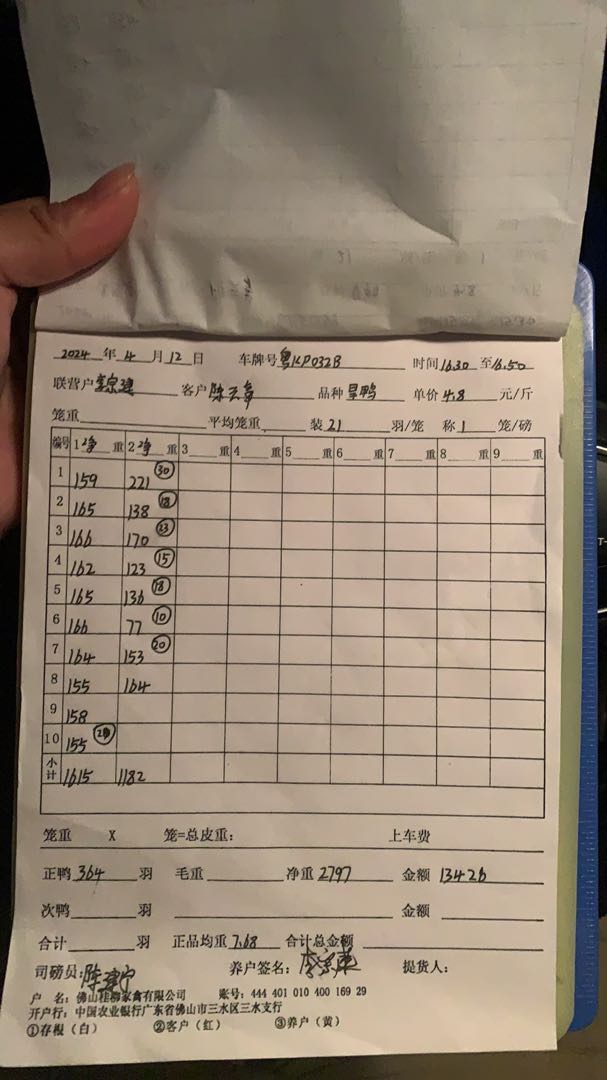 2024 年 4 月 12 日 车牌号 粤KP032B 时间 16.30 至 16.50
联营户 客户 陈 品种 旱鸭 单价 4.8 元/斤
笼重 平均笼重 装 21 羽/笼 称 1 笼/磅
编号 1 净 重 2 净 重 3 重 4 重 5 重 6 重 7 重 8 重 9 重
1 159 221 ㉚
2 165 138 ⑱
3 166 170 ㉓
4 162 123 ⑮
5 165 136 ⑱
6 166 77 ⑩
7 164 153 ⑳
8 155 164
9 158
10 155
小计 1615 1182
笼重 X 笼=总皮重: 上车费
正鸭 364 羽 毛重 净重 2797 金额 13426
次鸭 羽 金额
合计 羽 正品均重 7.68 合计总金额
司磅员: 陈 养户签名: 李 提货人:
户 名: 佛山桂柳家禽有限公司 账号: 444 401 010 400 169 29
开户行: 中国农业银行广东省佛山市三水区三水支行
①存根（白） ②客户（红） ③养户（黄）